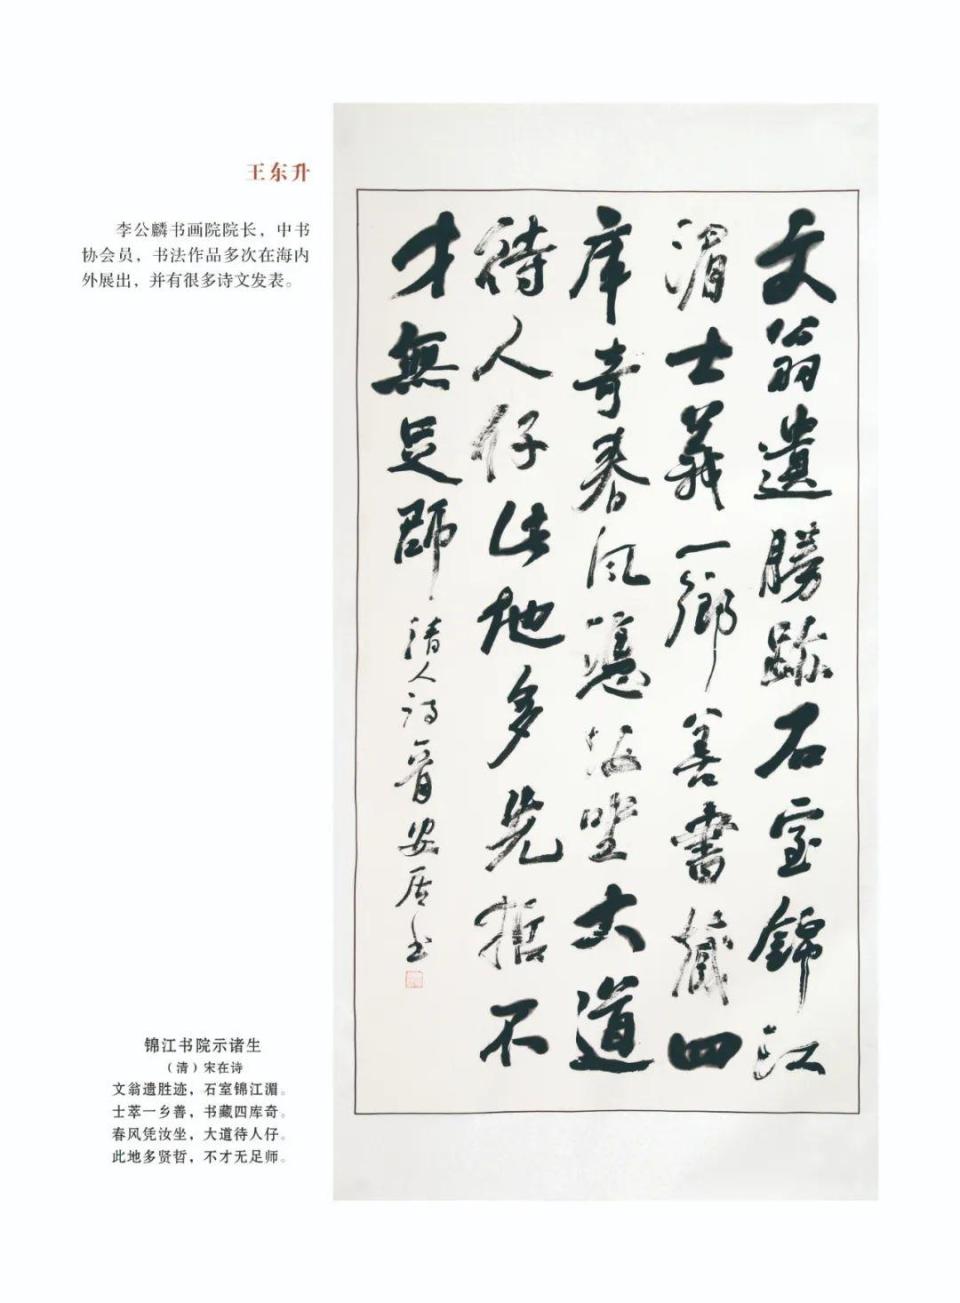 王东升
李公麟书画院院长，中书
协会员，书法作品多次在海内
外展出，并有很多诗文发表。
文翁遺勝跡石室錦江
湄士義一鄉善書藏四
庫奇春风憑汝坐大道
待人仔此地多先哲不
才無足師
清人诗 安居书
锦江书院示诸生
（清）宋在诗
文翁遗胜迹，石室锦江湄。
士萃一乡善，书藏四库奇。
春风凭汝坐，大道待人仔。
此地多贤哲，不才无足师。